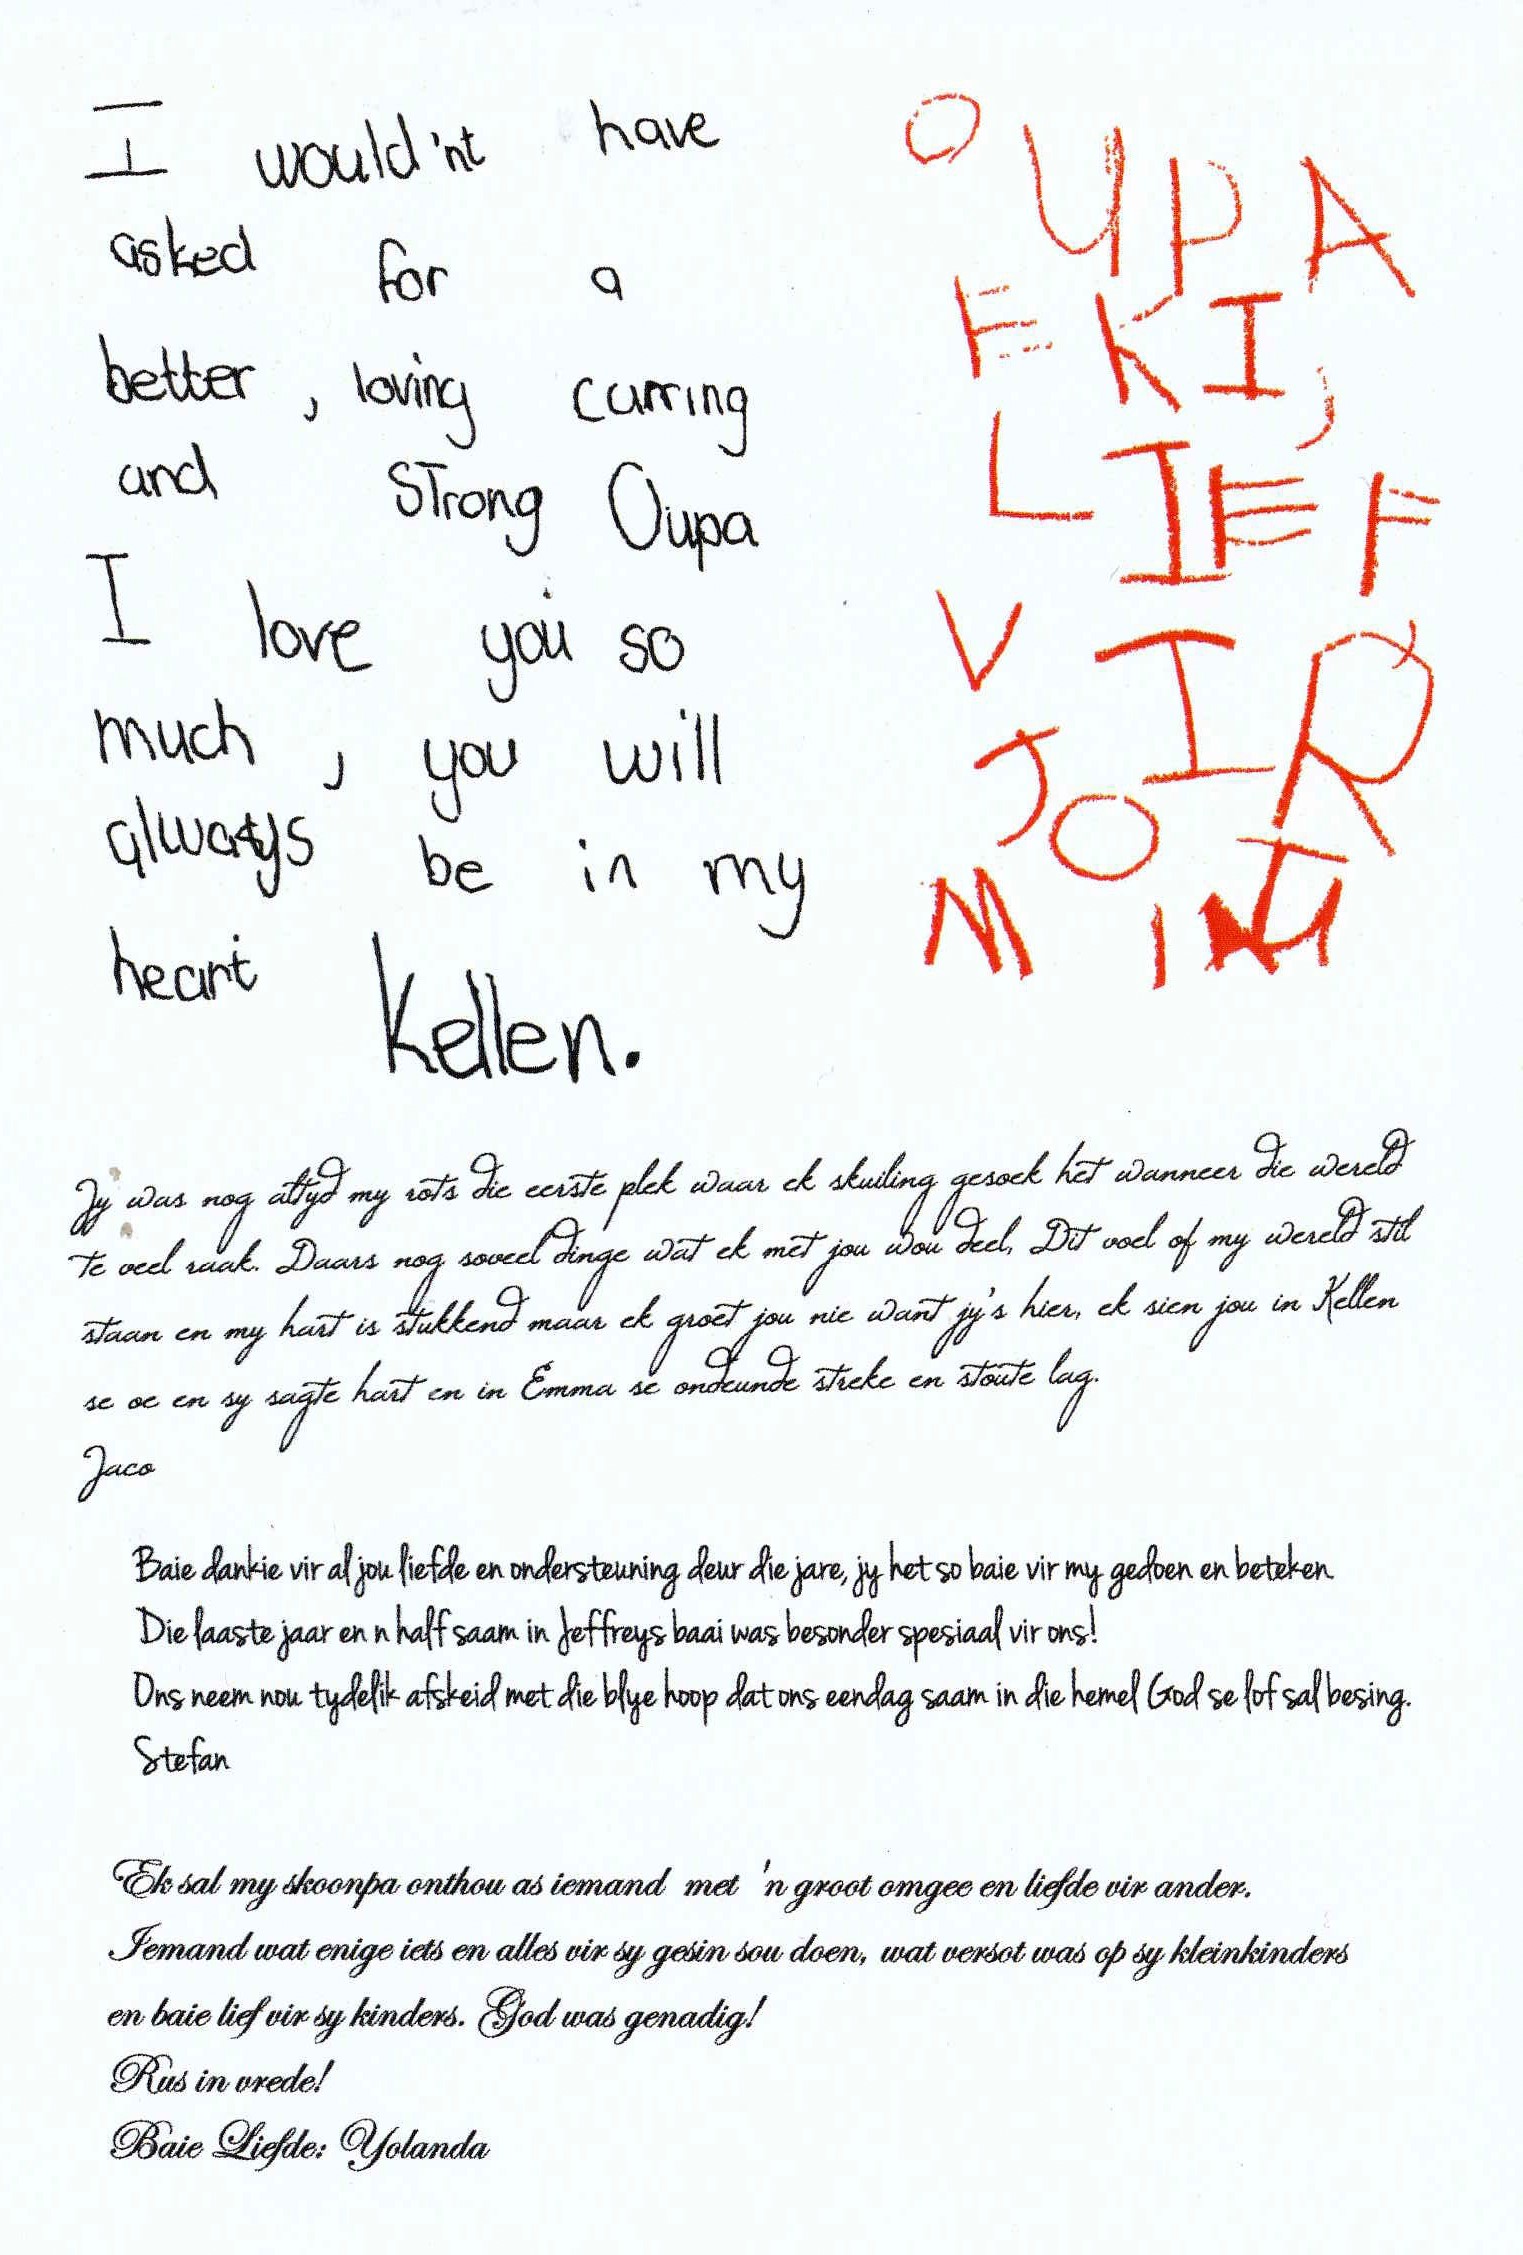 I would'nt have
asked for a
better, loving curring
and STrong Oupa
I love you so
much, you will
always be in my
heart Kellen.
OUPA
EKI,
LIEF
VIR
JOU
MI
Jy was nog altyd my rots die eerste plek waar ek skuiling gesoek het wanneer die wereld
te veel raak. Daars nog soveel dinge wat ek met jou wou deel. Dit voel of my wereld stil
staan en my hart is stukkend maar ek groet jou nie want jy's hier, ek sien jou in Kellen
se oe en sy sagte hart en in Emma se ondeunde streke en stoute lag.
Jaco
Baie dankie vir al jou liefde en ondersteuning deur die jare, jy het so baie vir my gedoen en beteken
Die laaste jaar en n half saam in Jeffreys baai was besonder spesiaal vir ons!
Ons neem nou tydelik afskeid met die blye hoop dat ons eendag saam in die hemel God se lof sal besing.
Stefan
Ek sal my skoonpa onthou as iemand met 'n groot omgee en liefde vir ander.
Iemand wat enige iets en alles vir sy gesin sou doen, wat versot was op sy kleinkinders
en baie lief vir sy kinders. God was genadig!
Rus in vrede!
Baie Liefde: Yolanda